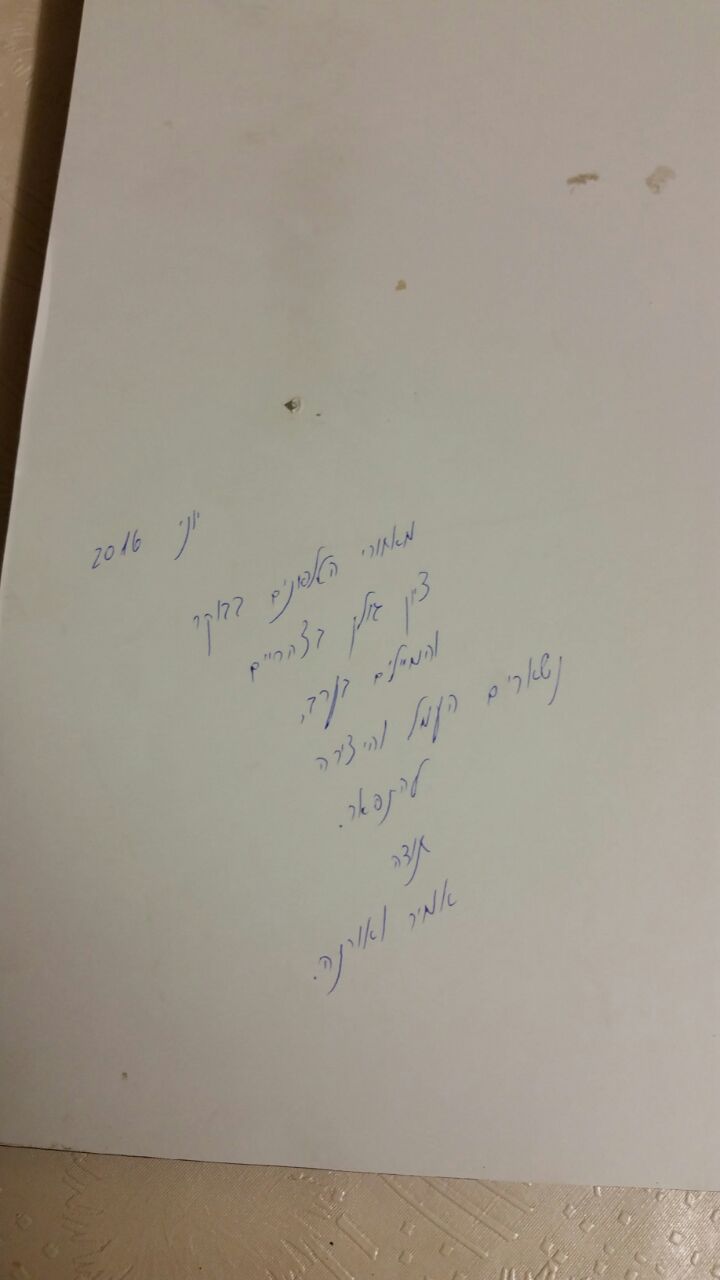 יוני 2016
מאחורי הטלפונים בבוקר
ציון גולן בצהריים
והמיילים בערב,
נשארים העמל והיצירה
להתפאר.
תודה
אמיר ואורנה.